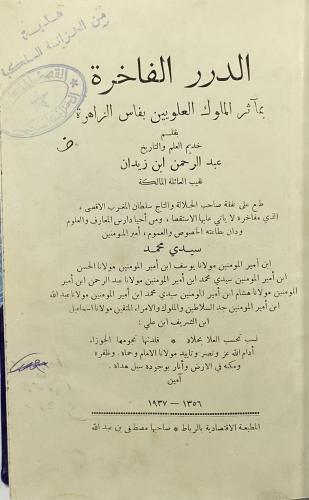 هدية
من الخزانة الملكية
الدرر الفاخرة
بمآثر الملوك العلويين بفاس الزاهرة
بقلم
خديم العلم والتاريخ
عبد الرحمن ابن زيدان
نقيب العائلة المالكة
طبع على نفقة صاحب الجلالة والتاج سلطان المغرب الاقصى ،
الذي مفاخره لا ياتي عليها الاستقصا ، ومن أحيا دارس المعارف والعلوم
ودان بطاعته الخصوص والعموم ، أمير المؤمنين
سيدي محمد
ابن أمير المومنين مولانا يوسف ابن أمير المومنين مولانا الحسن
ابن أمير المومنين سيدي محمد ابن أمير المومنين مولانا عبد الرحمن ابن أمير
المومنين مولانا هشام ابن أمير المومنين سيدي محمد ابن أمير المومنين مولانا عبد الله
ابن أمير المومنين جد السلاطين والملوك والامراء المتقين مولانا اسماعيل
ابن الشريف ابن علي :
نسب تحسب العلا بحلاه * قلدتها نجومها الجوزاء
أدام الله عز ونصر وتاييد مولانا الامام وحماه . وظفره
ومكنه في الارض وأنار بوجوده سبل هداه .
آمين
١٣٥٦ — ١٩٣٧
المطبعة الاقتصادية بالرباط * صاحبها مصطفى بن عبد الله